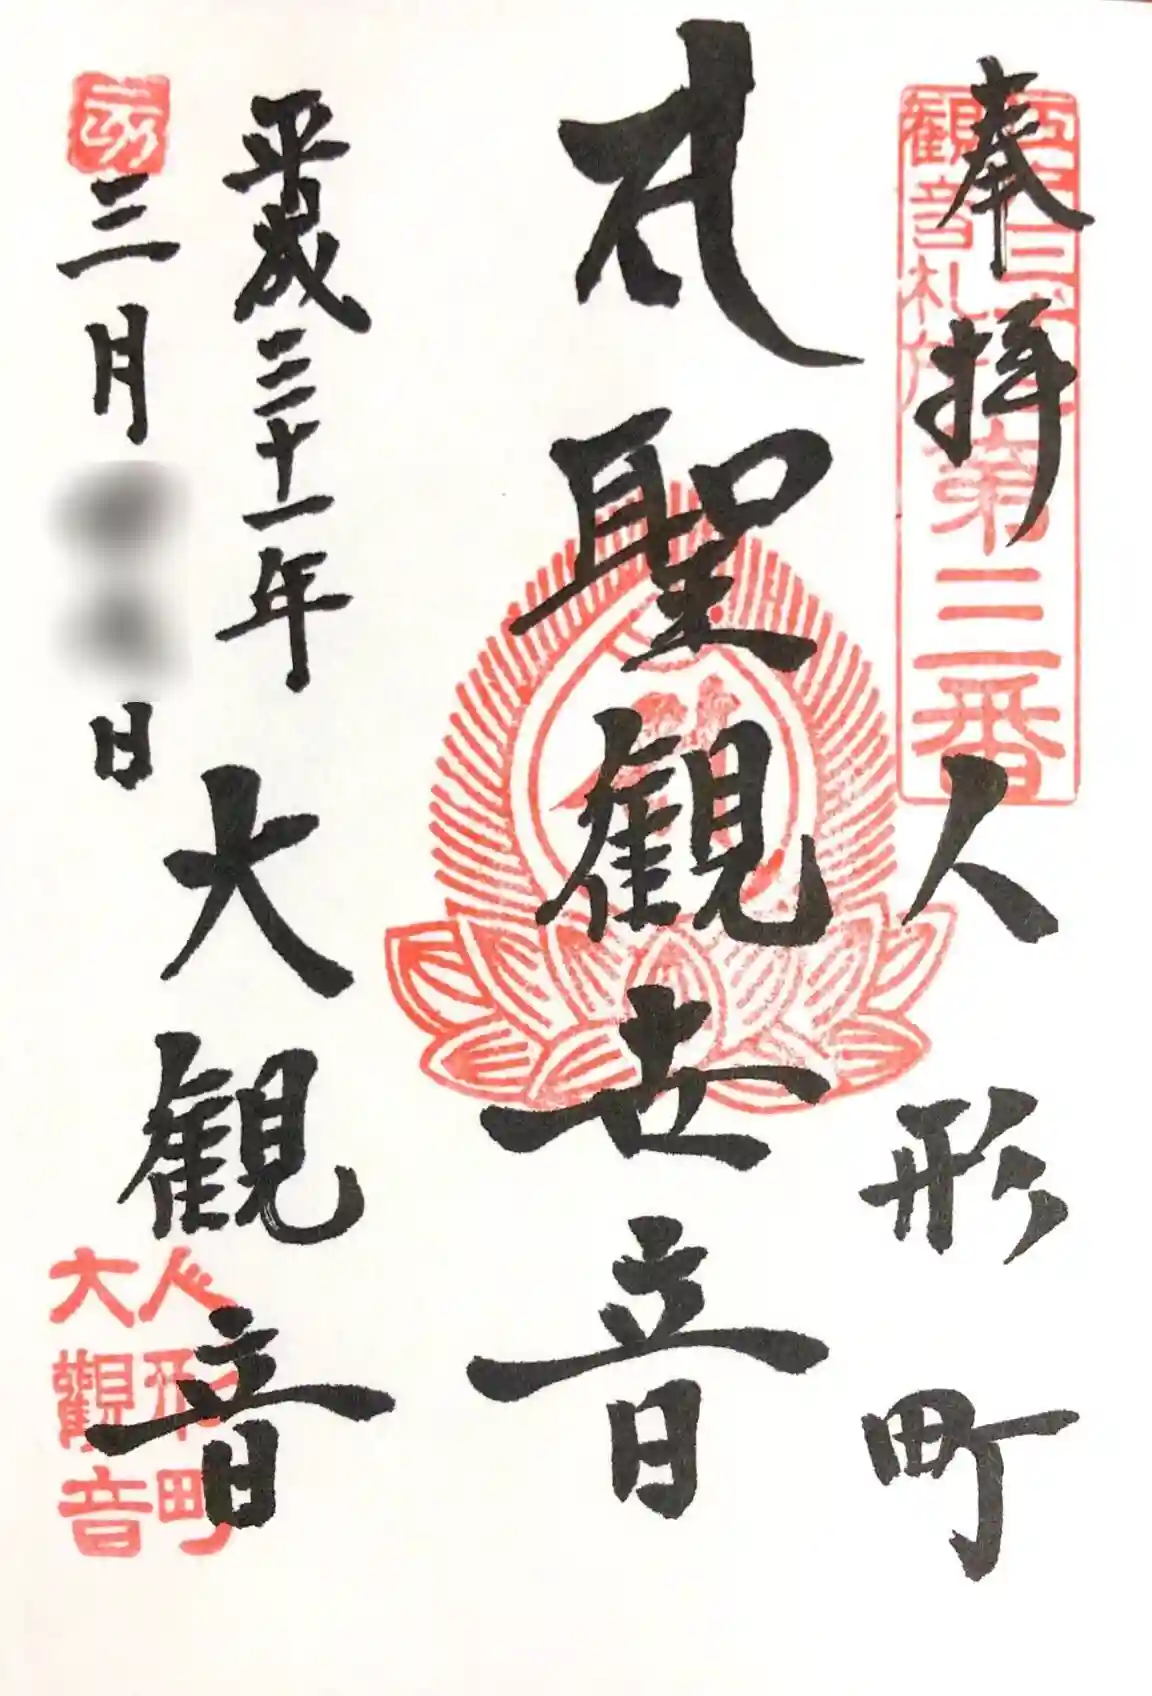 奉拝
人形町
聖観世音
平成三十一年
三月
日
大観音
観音札所
第三番
人形町
大観音